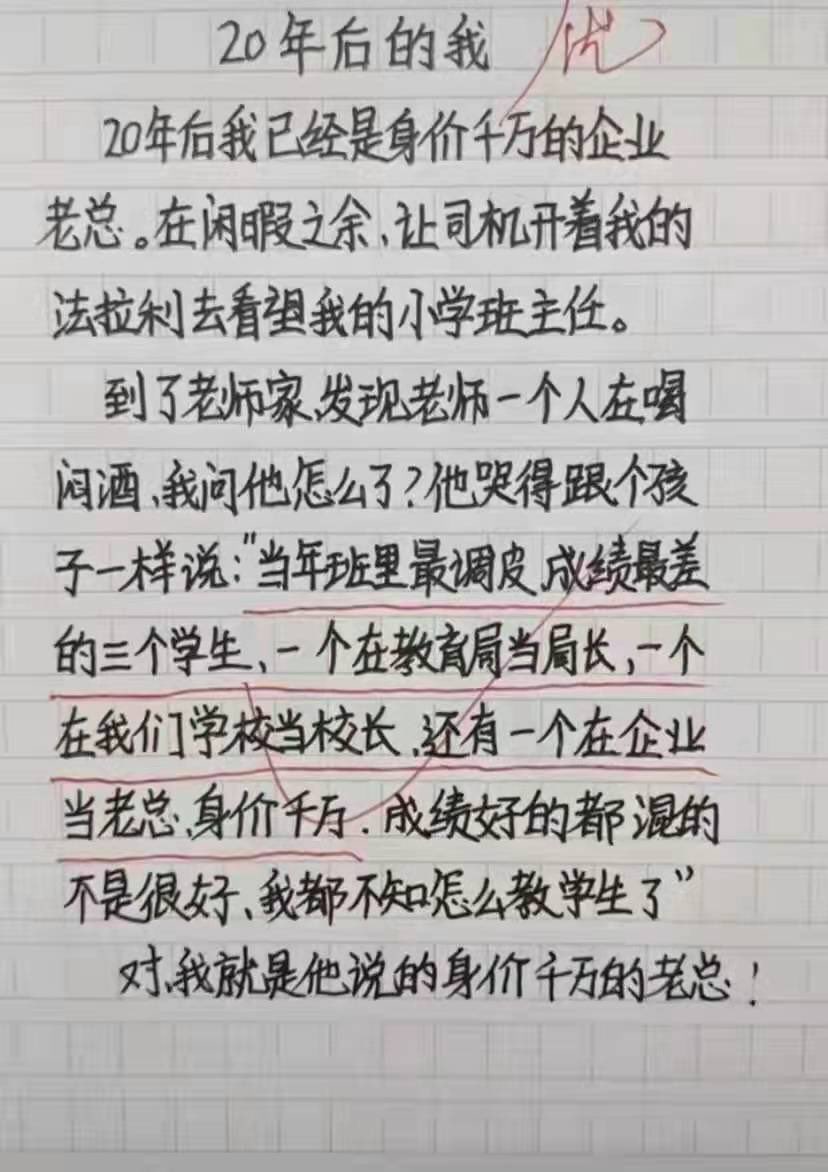 20年后的我 优
20年后我已经是身价千万的企业
老总。在闲暇之余、让司机开着我的
法拉利去看望我的小学班主任。
到了老师家、发现老师一个人在喝
闷酒、我问他怎么了?他哭得跟个孩
子一样说:"当年班里最调皮、成绩最差
的三个学生、一个在教育局当局长,一个
在我们学校当校长、还有一个在企业
当老总、身价千万.成绩好的都混的
不是很好、我都不知怎么教学生了”
对、我就是他说的身价千万的老总!